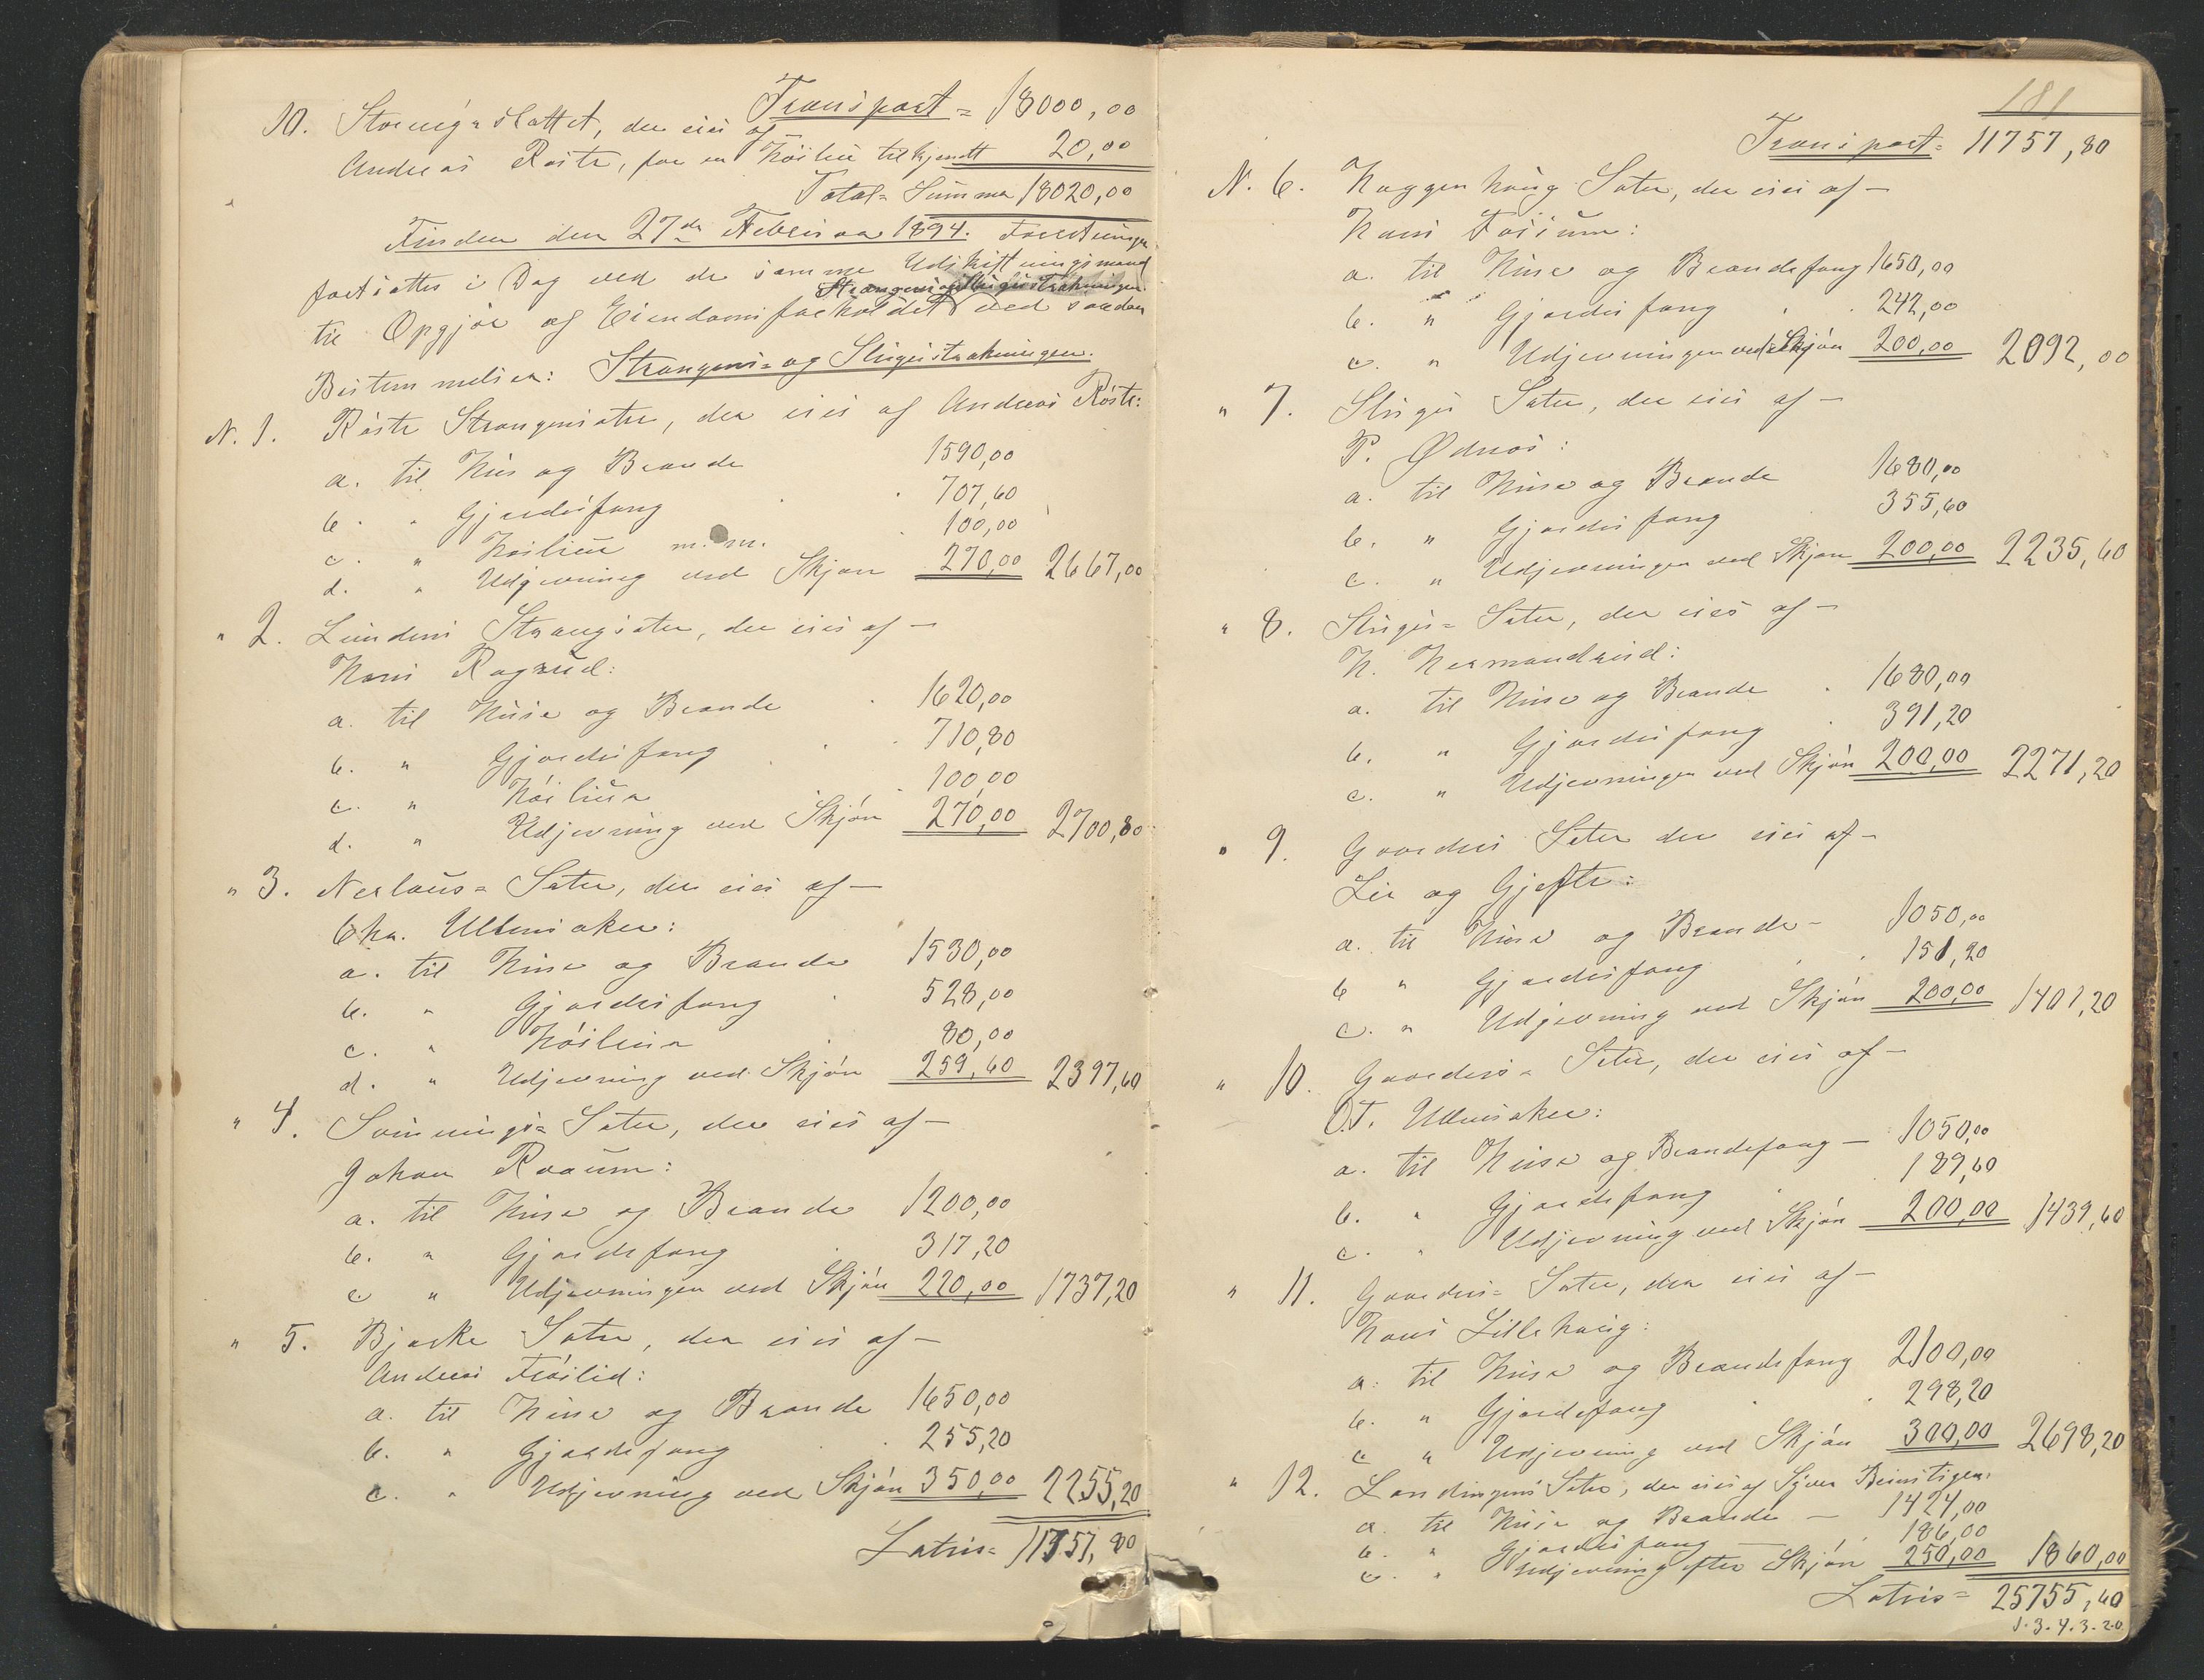 Transport = 18000,00
10. Stoeng=slattet, der eies af
Andreas Røste, for en Höilue tilkjendt 20,00
Total=Summa 18020,00
Finden den 27de Februar 1894. Forretningen
fortsattes i Dag ved de samme Udskiftningsmænd
Strangens og Slugustrakningen
til Opgjør af Eiendomsforholdet ved saadan
Bestemmelser: Strangens= og Slugustrakningen.
N. 1. Röste Strangensæter, der eies af Andreas Röste:
a. til Hus og Brande 1590,00
b. " Gjerdesfang 707,60
c. " Höilue m.m. 100,00
d. " Udjevning ved Skjøn 270,00 2667,00
" 2. Lundens Strangsæter, der eies af —
Hans Rognrud:
a. til Huse og Brande 1620,00
b. " Gjerdesfang 710,80
c. " Höiluer 100,00
d. " Udjevning ved Skjön 270,00 2700,80
" 3. Nerlaus= Sæter, der eies af —
Chr. Ullensaker:
a. til Huse og Brande 1530,00
b. " Gjerdesfang 528,00
c. " Höiluer 80,00
d. " Udjevning ved Skjön 259,60 2397,60
" 4. Svinnings= Sæter, der eies af —
Johan Roaum:
a. til Huse og Brande 1200,00
b. " Gjerdefang 317,20
c " Udjevningen ved Skjön 220,00 1737,20
" 5. Bjerke Sæter, der eies af —
Andreas Fröilid:
a. til Huse og Brande 1650,00
b. " Gjerdefang 255,20
c. " Udjevning ved Skjön 350,00 2255,20
Latris= 11757,80
181
Transport= 11757,80
N. 6. Haggenhaug Sæter, der eies af —
Hans Fossum:
a. til Huse og Brandefang 1650,00
b. " Gjerdesfang 242,00
c. " Udjevningen ved Skjön 200,00 2092,00
" 7. Slugu Sæter, der eies af —
P. Ødnæs:
a. til Huse og Brande 1680,00
b. " Gjerdesfang 355,60
c. " Udjevningen ved Skjøn 200,00 2235,60
" 8. Slugu= Sæter, der eies af —
H. Hermandrud:
a. til Huse og Brande 1680,00
b. " Gjerdesfang 391,20
c. " Udjevningen ved Skjön 200,00 2271,20
" 9. Gaarders Sæter der eies af —
Lie og Gjefte:
a. til Huse og Brande — 1050,00
b " Gjerdesfang 151,20
c. " Udjevning ved Skjön 200,00 1401,20
" 10. Gaarders= Sæter, der eies af —
O.T. Ullensaker:
a. til Huse og Brandefang — 1050,00
b. " Gjerdefang 189,60
c. " Udjevning ved Skjön 200,00 1439,60
" 11. Gaarders= Sæter, der eies af —
Hans Lillehaug:
a. til Huse og Brandefang 2100,00
b. " Gjerdefang 298,20
c " Udjevning ved Skjön 300,00 2698,20
" 12. Landingens Sæter, der eies af Syver Beinstigen.
a. til Huse og Brande — 1424,00
b. " Gjerdesfang — 186,00
c. " Udjevning efter Skjön 250,00 1860,00
Latris= 25755,40
1.3.4.3.20